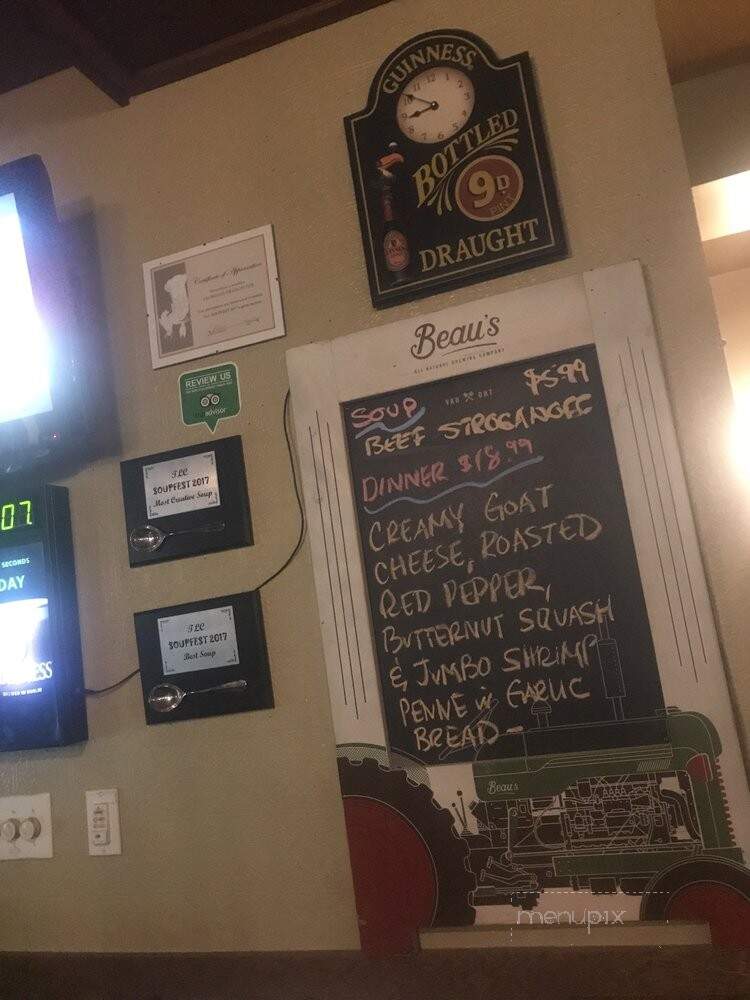 GUINNESS
12
1
2
3
4
5
6
7
8
9
10
11
BOTTLED
9D
PINT
DRAUGHT
Certificate of Appreciation
REVIEW US
tripadvisor
TLC
SOUPFEST 2017
Most Creative Soup
TLC
SOUPFEST 2017
Best Soup
07
SECONDS
DAY
NESS
Beau's
ALL NATURAL BREWING COMPANY
VAN ONT
SOUP $5.99
BEEF STROGANOFF
DINNER $18.99
CREAMY GOAT
CHEESE, ROASTED
RED PEPPER,
BUTTERNUT SQUASH
& JUMBO SHRIMP
PENNE W GARLIC
BREAD -
Beau's
menupix